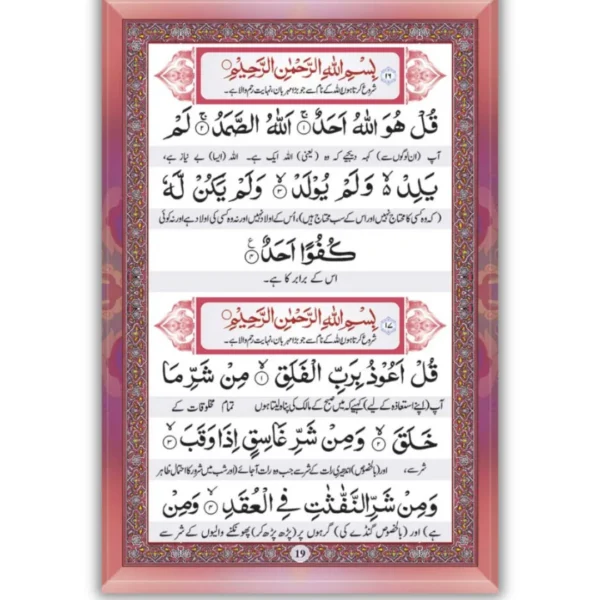 ۱۶ بِسْمِ اللهِ الرَّحْمٰنِ الرَّحِيْمِ
شروع کرتا ہوں اللہ کے نام سے جو بڑا مہربان، نہایت رحم والا ہے۔
قُلْ هُوَ اللهُ اَحَدٌ ۚ۝۱ اَللهُ الصَّمَدُ ۚ۝۲ لَمْ
آپ (ان لوگوں سے) کہہ دیجیے کہ وہ (یعنی) اللہ ایک ہے۔ اللہ (ایسا) بے نیاز ہے،
يَلِدْ ۙ۬ وَلَمْ يُوْلَدْ ۙ۝۳ وَلَمْ يَكُنْ لَّهٗ
(کہ وہ کسی کا محتاج نہیں اور اس کے سب محتاج ہیں)، اُس کے اولاد نہیں اور نہ وہ کسی کی اولاد ہے اور نہ کوئی
كُفُوًا اَحَدٌ ۝۴
اس کے برابر کا ہے۔
۱۷ بِسْمِ اللهِ الرَّحْمٰنِ الرَّحِيْمِ
شروع کرتا ہوں اللہ کے نام سے جو بڑا مہربان، نہایت رحم والا ہے۔
قُلْ اَعُوْذُ بِرَبِّ الْفَلَقِ ۙ۝۱ مِنْ شَرِّ مَا
آپ (اپنے استعاذہ کے لیے) کہیے کہ میں صبح کے مالک کی پناہ لیتا ہوں تمام مخلوقات کے
خَلَقَ ۙ۝۲ وَمِنْ شَرِّ غَاسِقٍ اِذَا وَقَبَ ۙ۝۳
شر سے، اور (بالخصوص) اندھیری رات کے شر سے جب وہ رات آجائے (اور شب میں شرور کا احتمال ظاہر
وَمِنْ شَرِّ النَّفّٰثٰتِ فِي الْعُقَدِ ۙ۝۴ وَمِنْ
ہے) اور (بالخصوص گنڈے کی) گرہوں پر (پڑھ پڑھ کر) پھونکنے والیوں کے شر سے
19